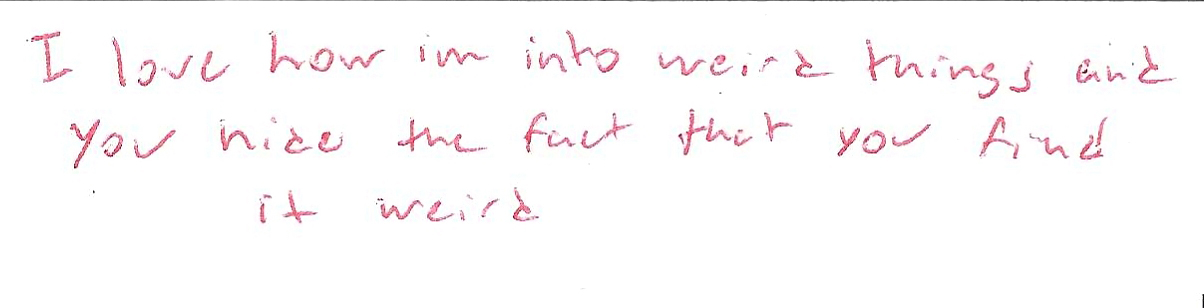 I love how im into weird things and
you hide the fact that you find
it weird